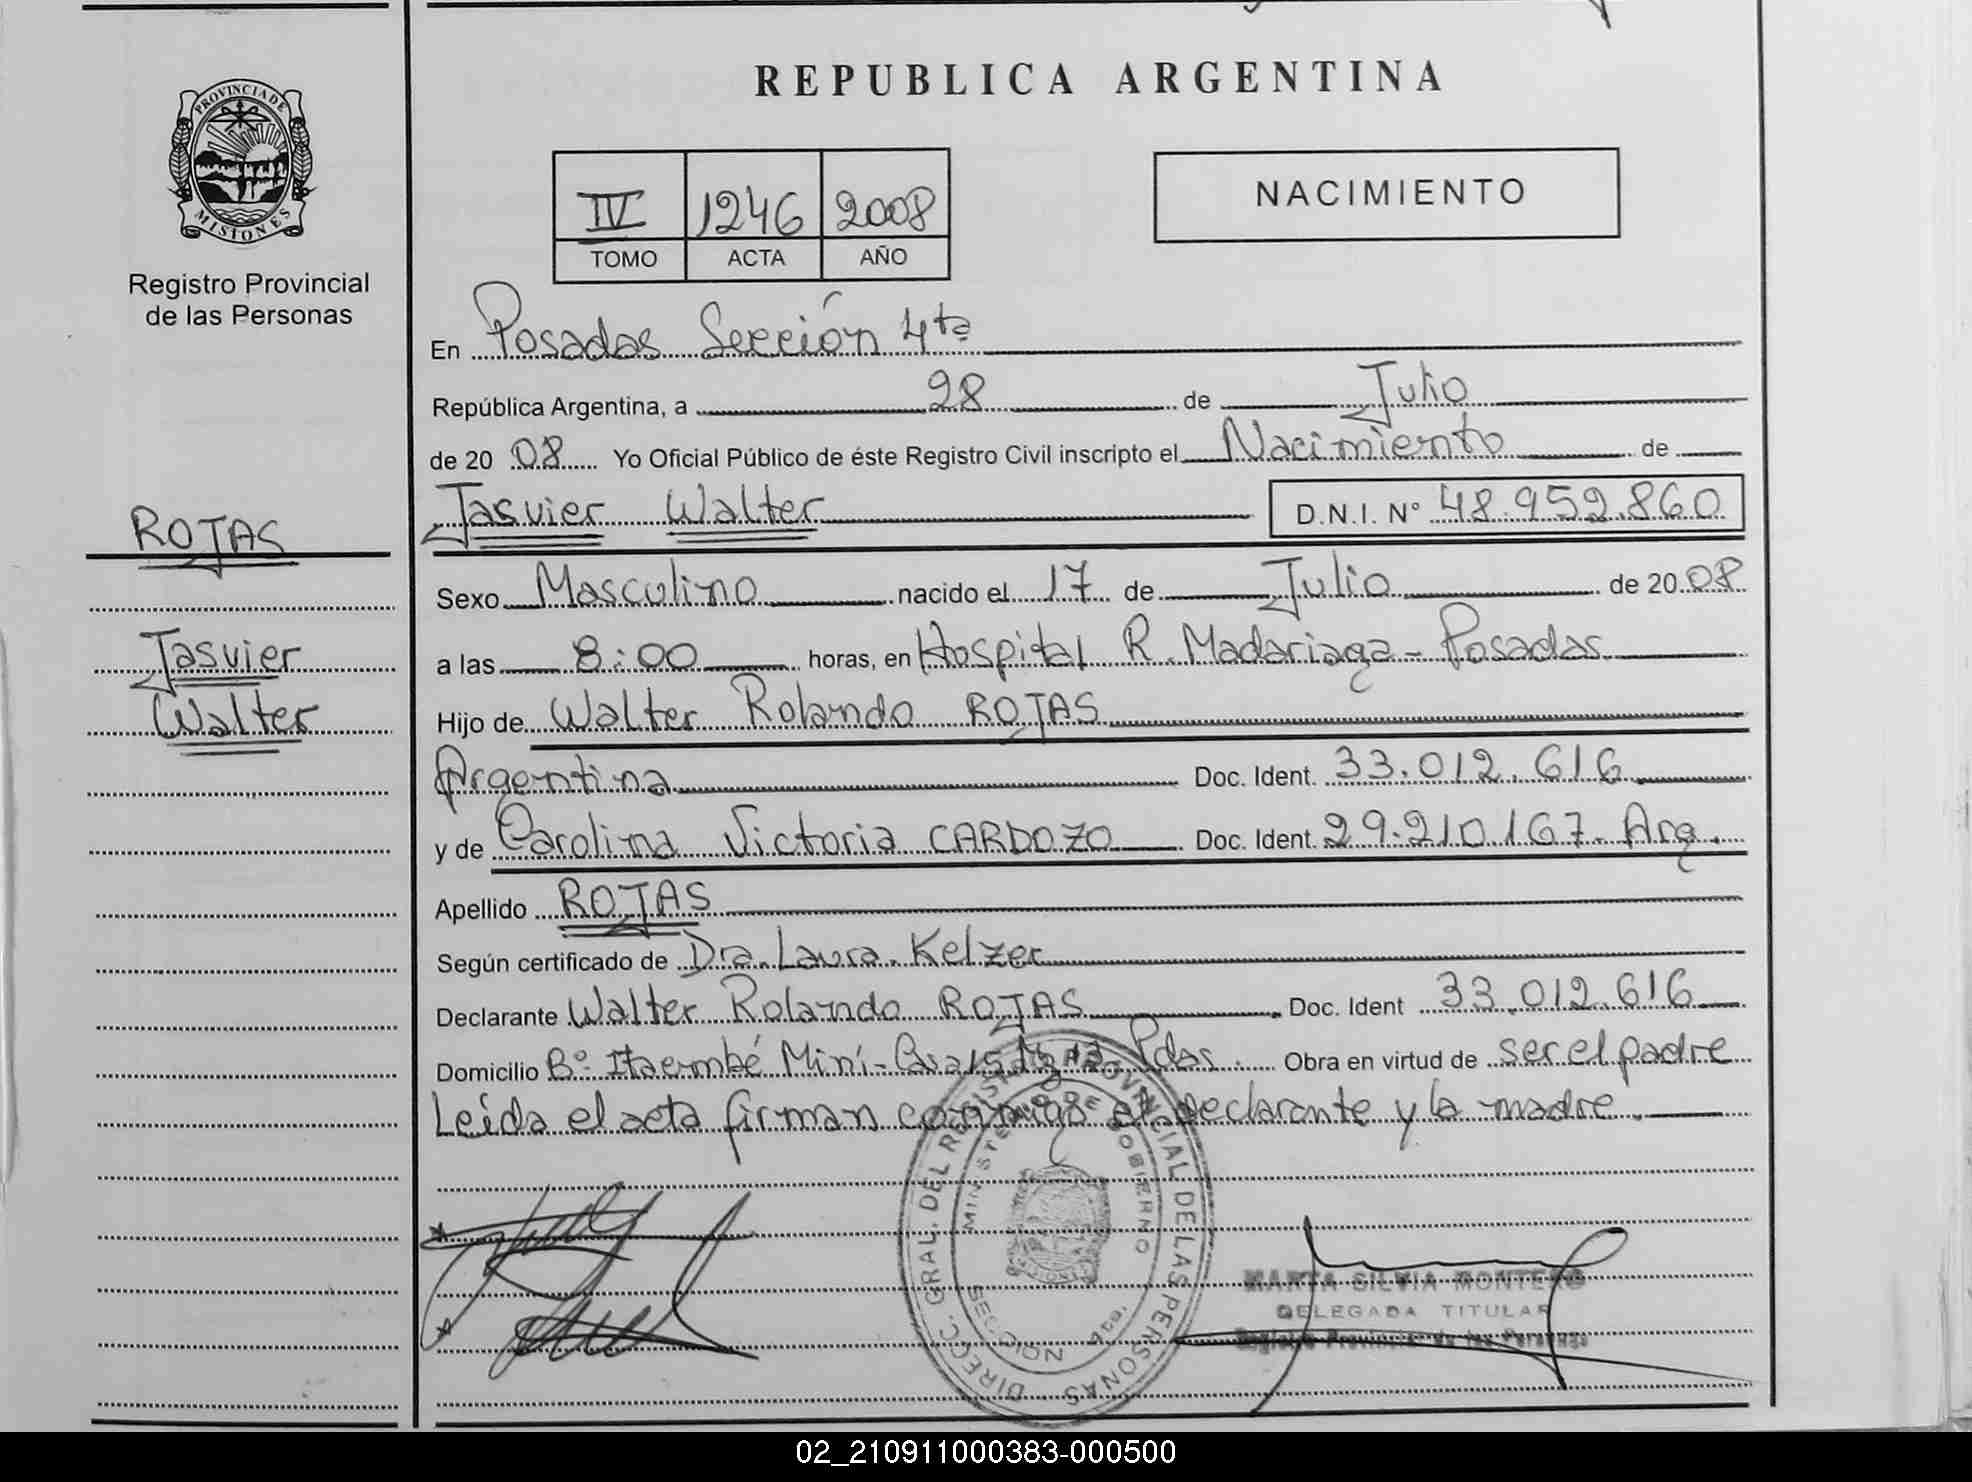 REPUBLICA ARGENTINA
PROVINCIA DE
MISIONES
Registro Provincial
de las Personas
IV 1246 2008
TOMO ACTA AÑO
NACIMIENTO
En Posadas Sección 4ta
República Argentina, a 28 de Julio
de 20 08 Yo Oficial Público de éste Registro Civil inscripto el Nacimiento de
Jasvier Walter D.N.I. N° 48.952.860
ROJAS
Jasvier
Walter
Sexo Masculino nacido el 17 de Julio de 20 08
a las 8:00 horas, en Hospital R. Madariaga - Posadas
Hijo de Walter Rolando ROJAS
Argentina Doc. Ident. 33.012.616
y de Carolina Victoria CARDOZO Doc. Ident. 29.210.167. Arg.
Apellido ROJAS
Según certificado de Dra. Laura Kelzer
Declarante Walter Rolando ROJAS Doc. Ident 33.012.616
Domicilio B° Itaembé Miní - Casa 15 Pdas. Obra en virtud de ser el padre
Leída el acta firman conmigo el declarante y la madre.
DIRECC. GRAL. DEL REGISTRO PROVINCIAL DE LAS PERSONAS
MINISTERIO DE GOBIERNO
SECCION 4ta.
MARTA SILVIA MONTERO
DELEGADA TITULAR
Registro Provincial de las Personas
02_210911000383-000500